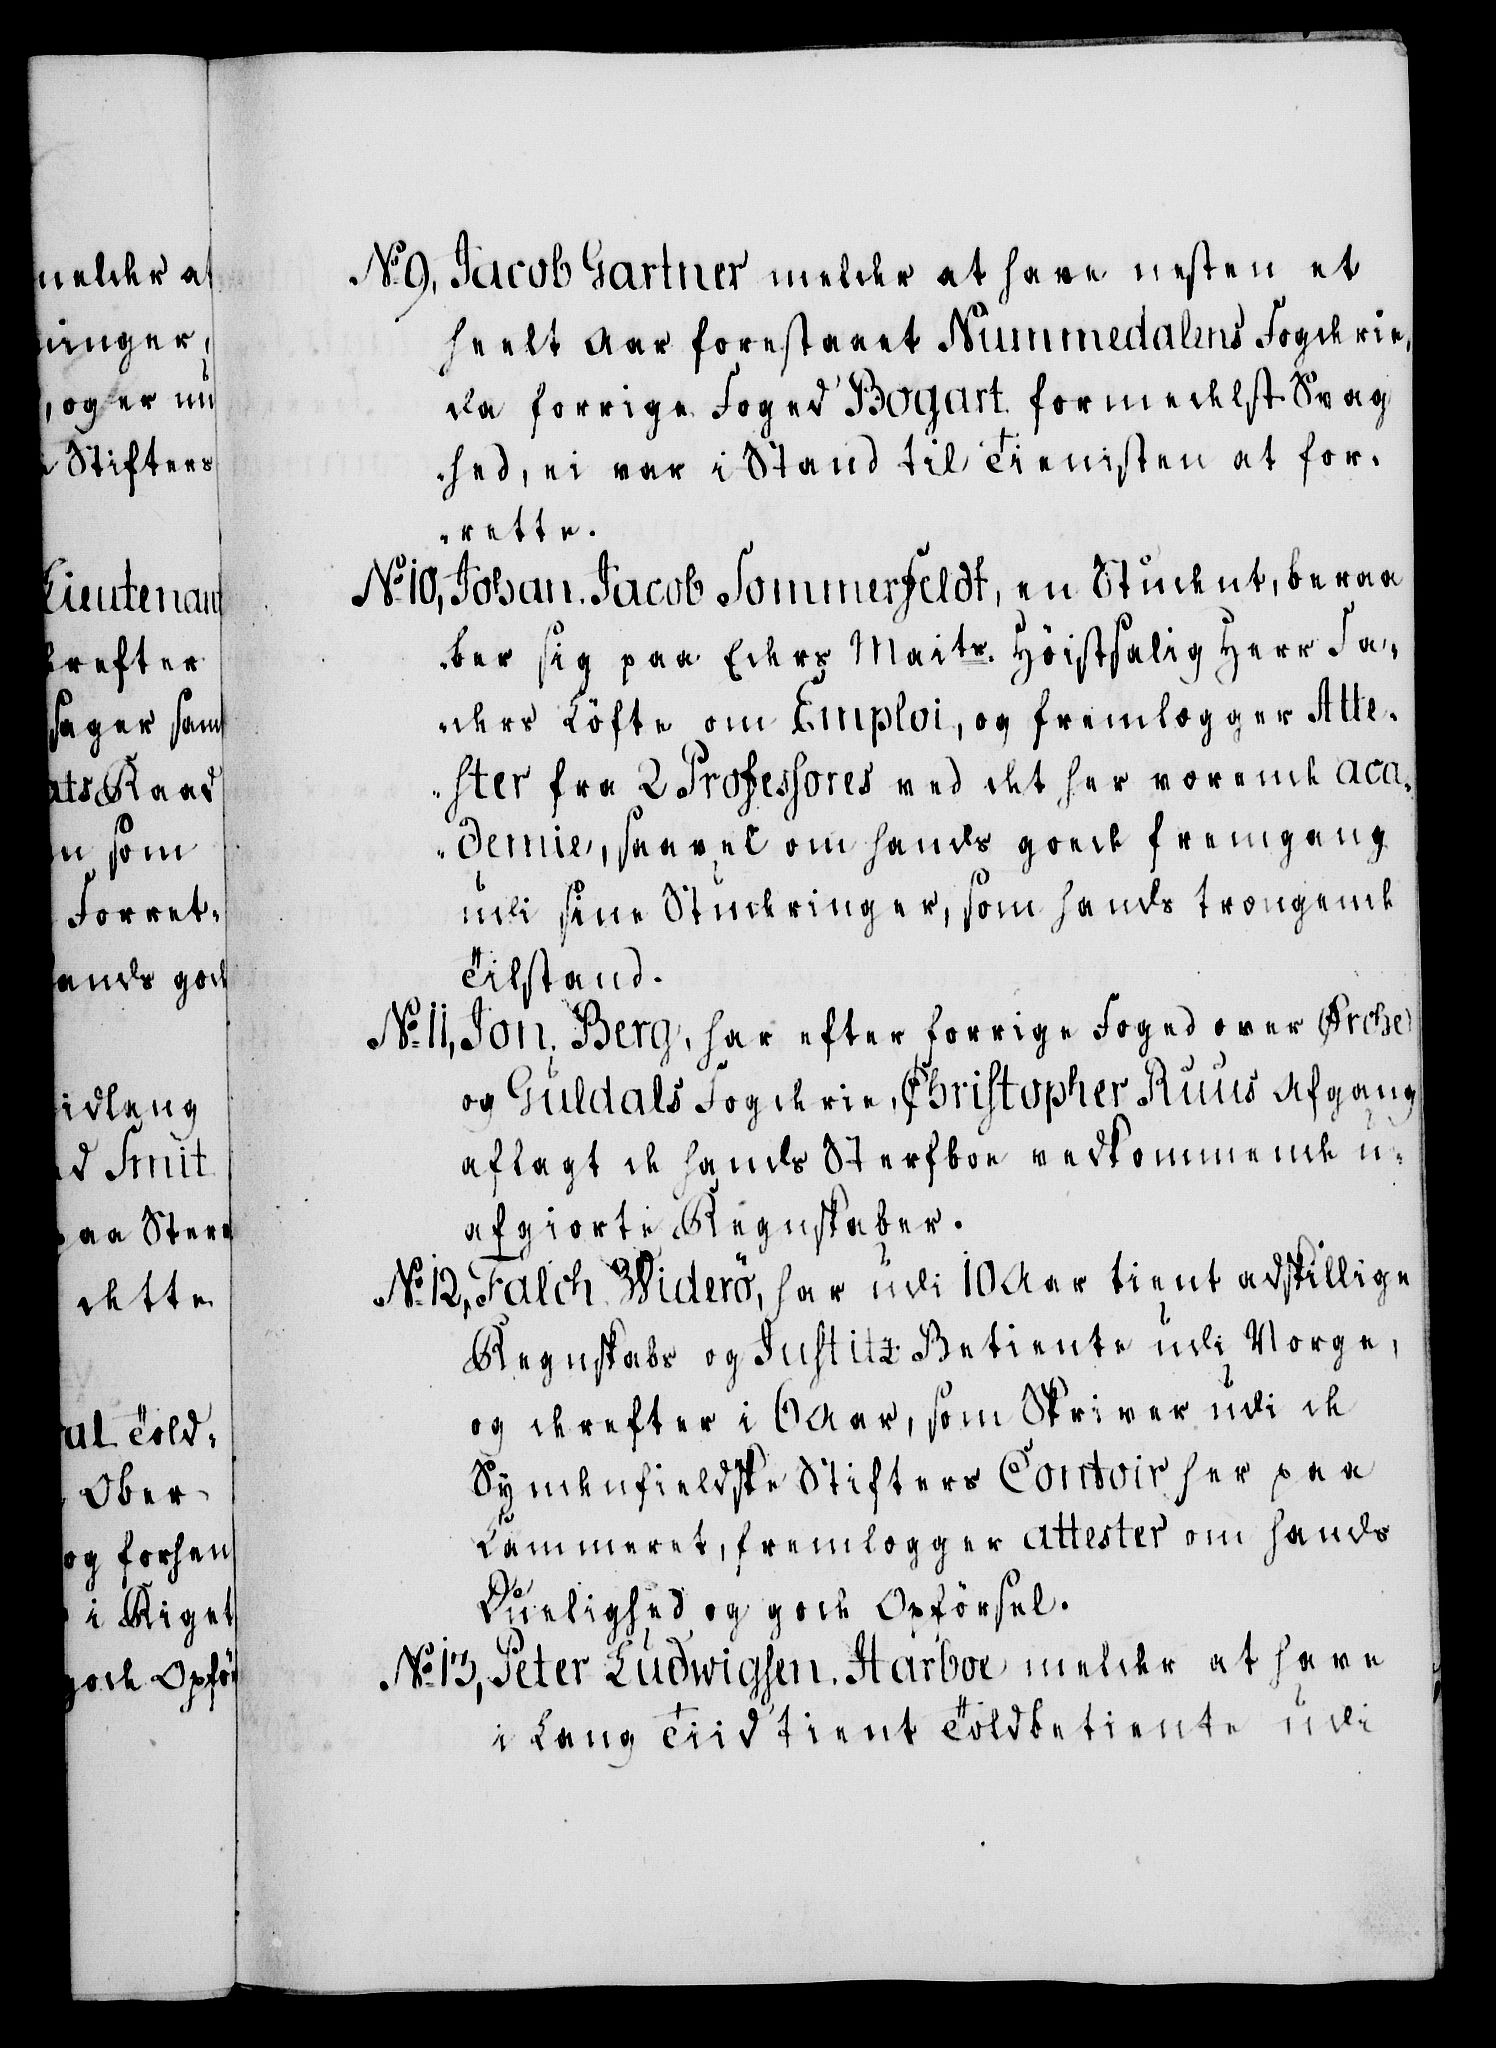 melder at
ninger,
, og er nu
Stifters
Lieutenant
derefter
sager samt
ats Raad
som
Forret-
hands gode
idlang
d Smit
paa Stere
dette
Told-
Ober-
og forhen
i Riget
gode Opför
No 9, Jacob Gartner melder at have nesten et
heelt Aar forestaaet Nummedalens Fogderie,
da forrige Foged Bogart formedelst Svag
-hed, ei var i Stand til Tienisten at for-
-rette.
No 10, Johan Jacob Sommerfeldt, en Student, beraa
-ber sig paa Eders Maits. Höistsalig Herr Fa-
-ders Löfte om Emploi, og fremlegger Atte-
-ster fra 2 Professores ved det her værende Aca-
-demie, saavel om hands goede fremgang
udi sine Studeringer, som hands trængende
Tilstand.
No 11, Jon Berg, har efter forrige Foged over Orche
og Guldals Fogderie, Christopher Ruus Afgang
aflagt de hands Sterfboe vedkommende u-
afgiorte Regnskaber.
No 12, Falch Widerö, har udi 10 Aar tient adskillige
Regnskabs og Justitz Betiente udi Norge,
og derefter i 6 Aar, som Skriver udi de
Syndenfieldske Stifters Contoir her paa
Cammeret, fremlegger attester om hands
Duelighed og gode Opförsel.
No 13, Peter Ludwigsen Harboe melder at have
i Lang Tiid tient Toldbetiente udi